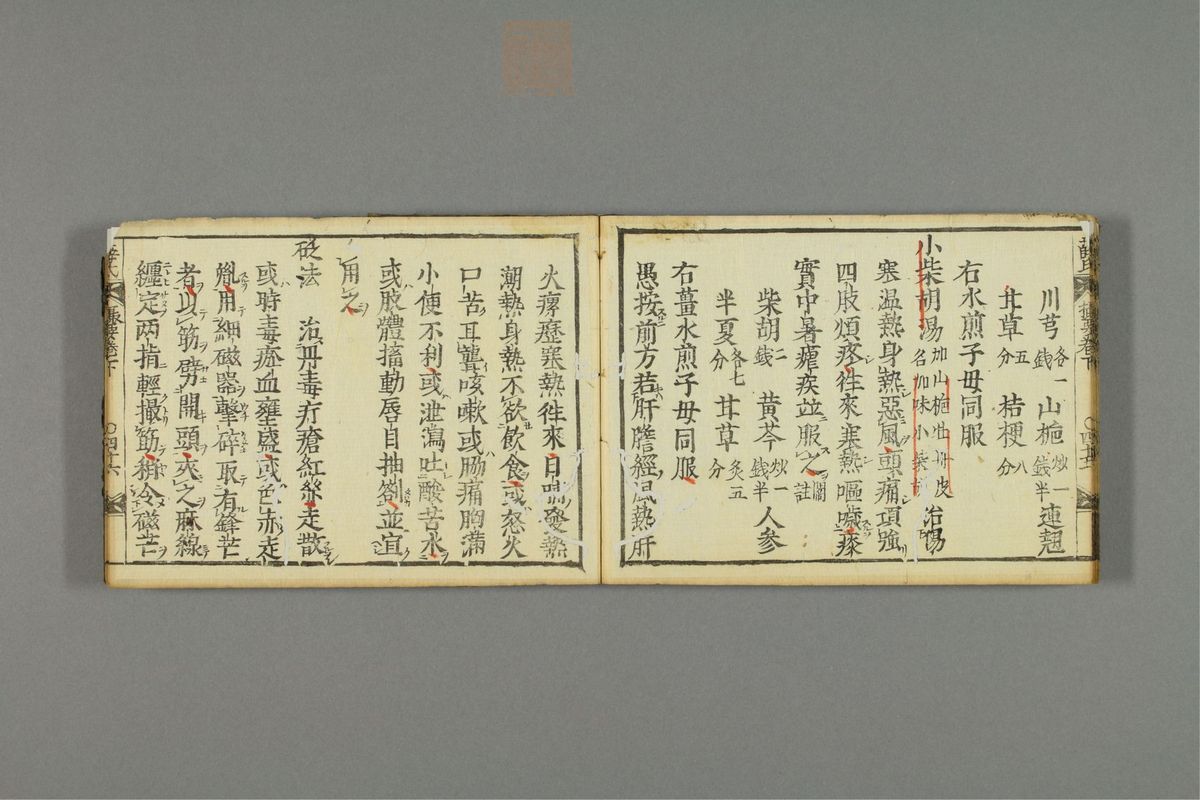 川芎各一錢 山梔炒一錢半 連翹
甘草五分 桔梗八分
右水煎子母同服
小柴胡湯加山梔牡丹皮名加味小柴胡湯 治傷
寒温熱身熱惡風頭痛項強
四肢煩疼徃來寒熱嘔噦痰
實中暑瘧疾並服之圈註
柴胡二錢 黃芩炒一錢半 人參
半夏各七分 甘草炙五分
右薑水煎子母同服
愚按前方若肝膽經風熱肝
火瘰癧寒熱徃來日晡發熱
潮熱身熱不欲飲食或怒火
口苦耳聾咳嗽或脇痛胸滿
小便不利或泄瀉吐酸苦水
或肢體搐動唇目抽劄並宜
用之
砭法 治丹毒疔瘡紅絲走散
或時毒瘀血壅盛或色赤走
彪用細磁器擊碎取有鋒芒
者以筋劈開頭夾之麻線
纏定两指輕撮筋稍令磁芒